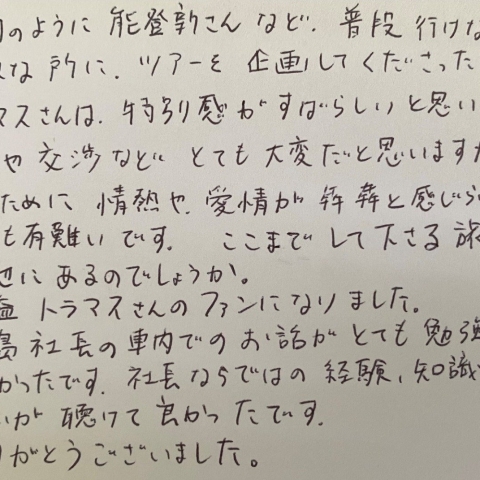 のように 能登新さん など、普段 行けな
な 所に、ツアーを 企画して くださった
マスさんは、特別感が すばらしいと思い
や 交渉など とても 大変だと思いますが
ために 情熱や、愛情が 犇犇と感じら
も有難いです。 ここまで して下さる 旅
にあるのでしょうか。
トラマスさんの ファンになりました。
社長の車内での お話が とても 勉強
かったです。社長ならではの 経験、知識
が 聴けて 良かったです。
がとうございました。